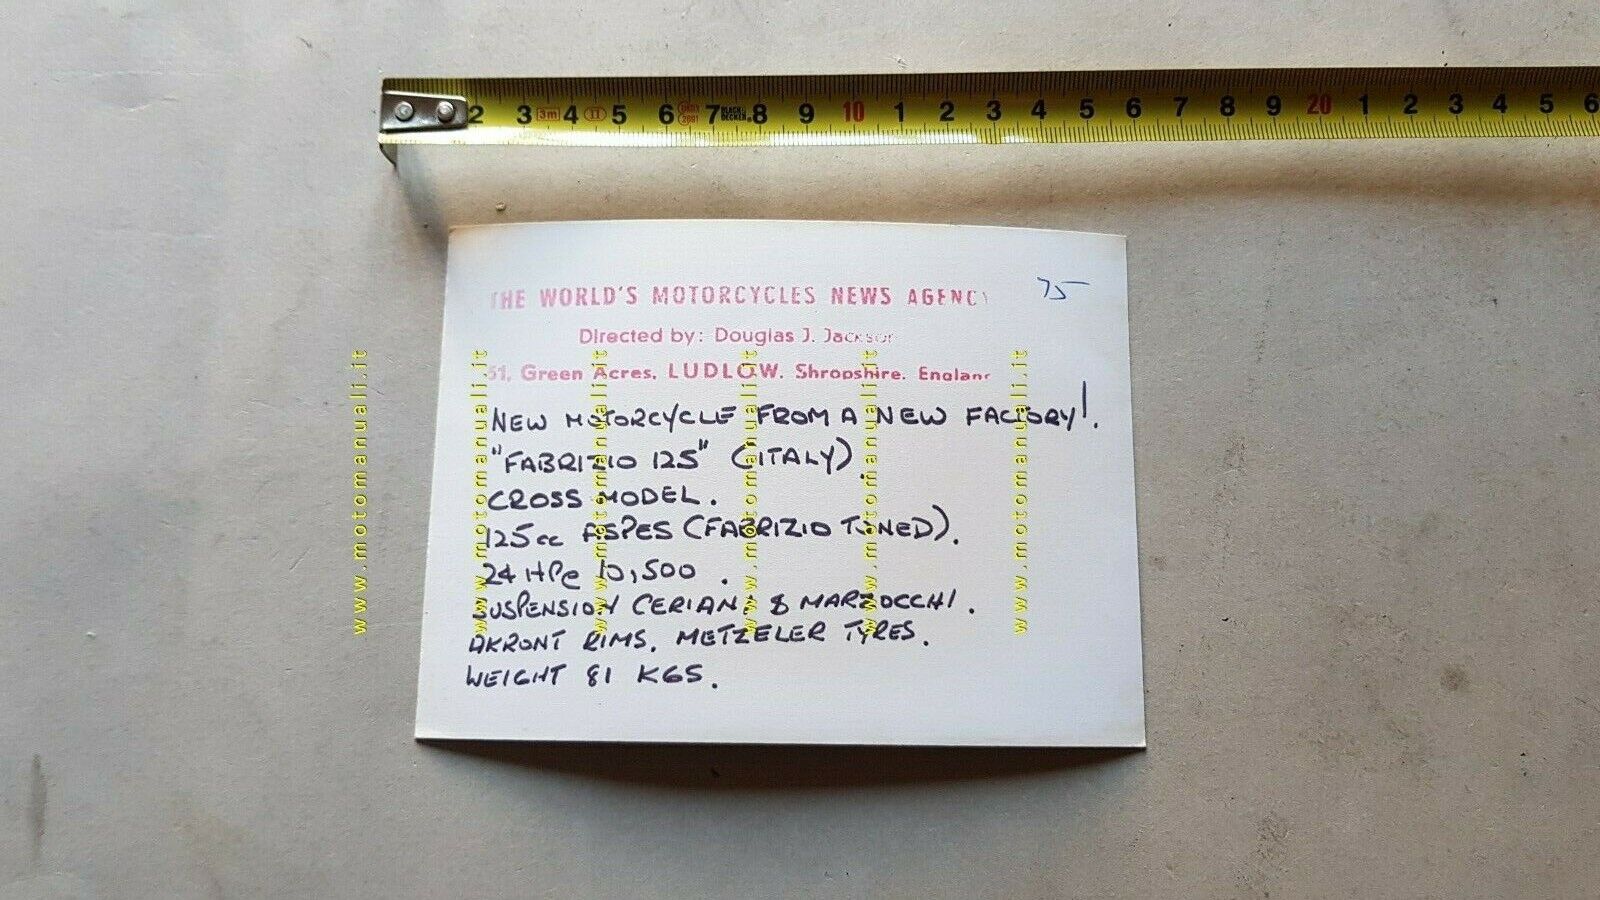 2 3 3m 4 II 5 6 7 BLACK& DECKER. 8 9 10 1 2 3 4 5 6 7 8 9 20 1 2 3 4 5 6
THE WORLD'S MOTORCYCLES NEWS AGENCY
75
Directed by: Douglas J. Jackson
51, Green Acres, LUDLOW. Shropshire. England
NEW MOTORCYCLE FROM A NEW FACTORY!.
"FABRIZIO 125" (ITALY).
CROSS MODEL.
125cc ASPES (FABRIZIO TUNED).
24 HPe 10,500.
SUSPENSION CERIANI & MARZOCCHI.
AKRONT RIMS. METZELER TYRES.
WEIGHT 81 KGS.
www.motomanuali.it
www.motomanuali.it
www.motomanuali.it
www.motomanuali.it
www.motomanuali.it
www.motomanuali.it